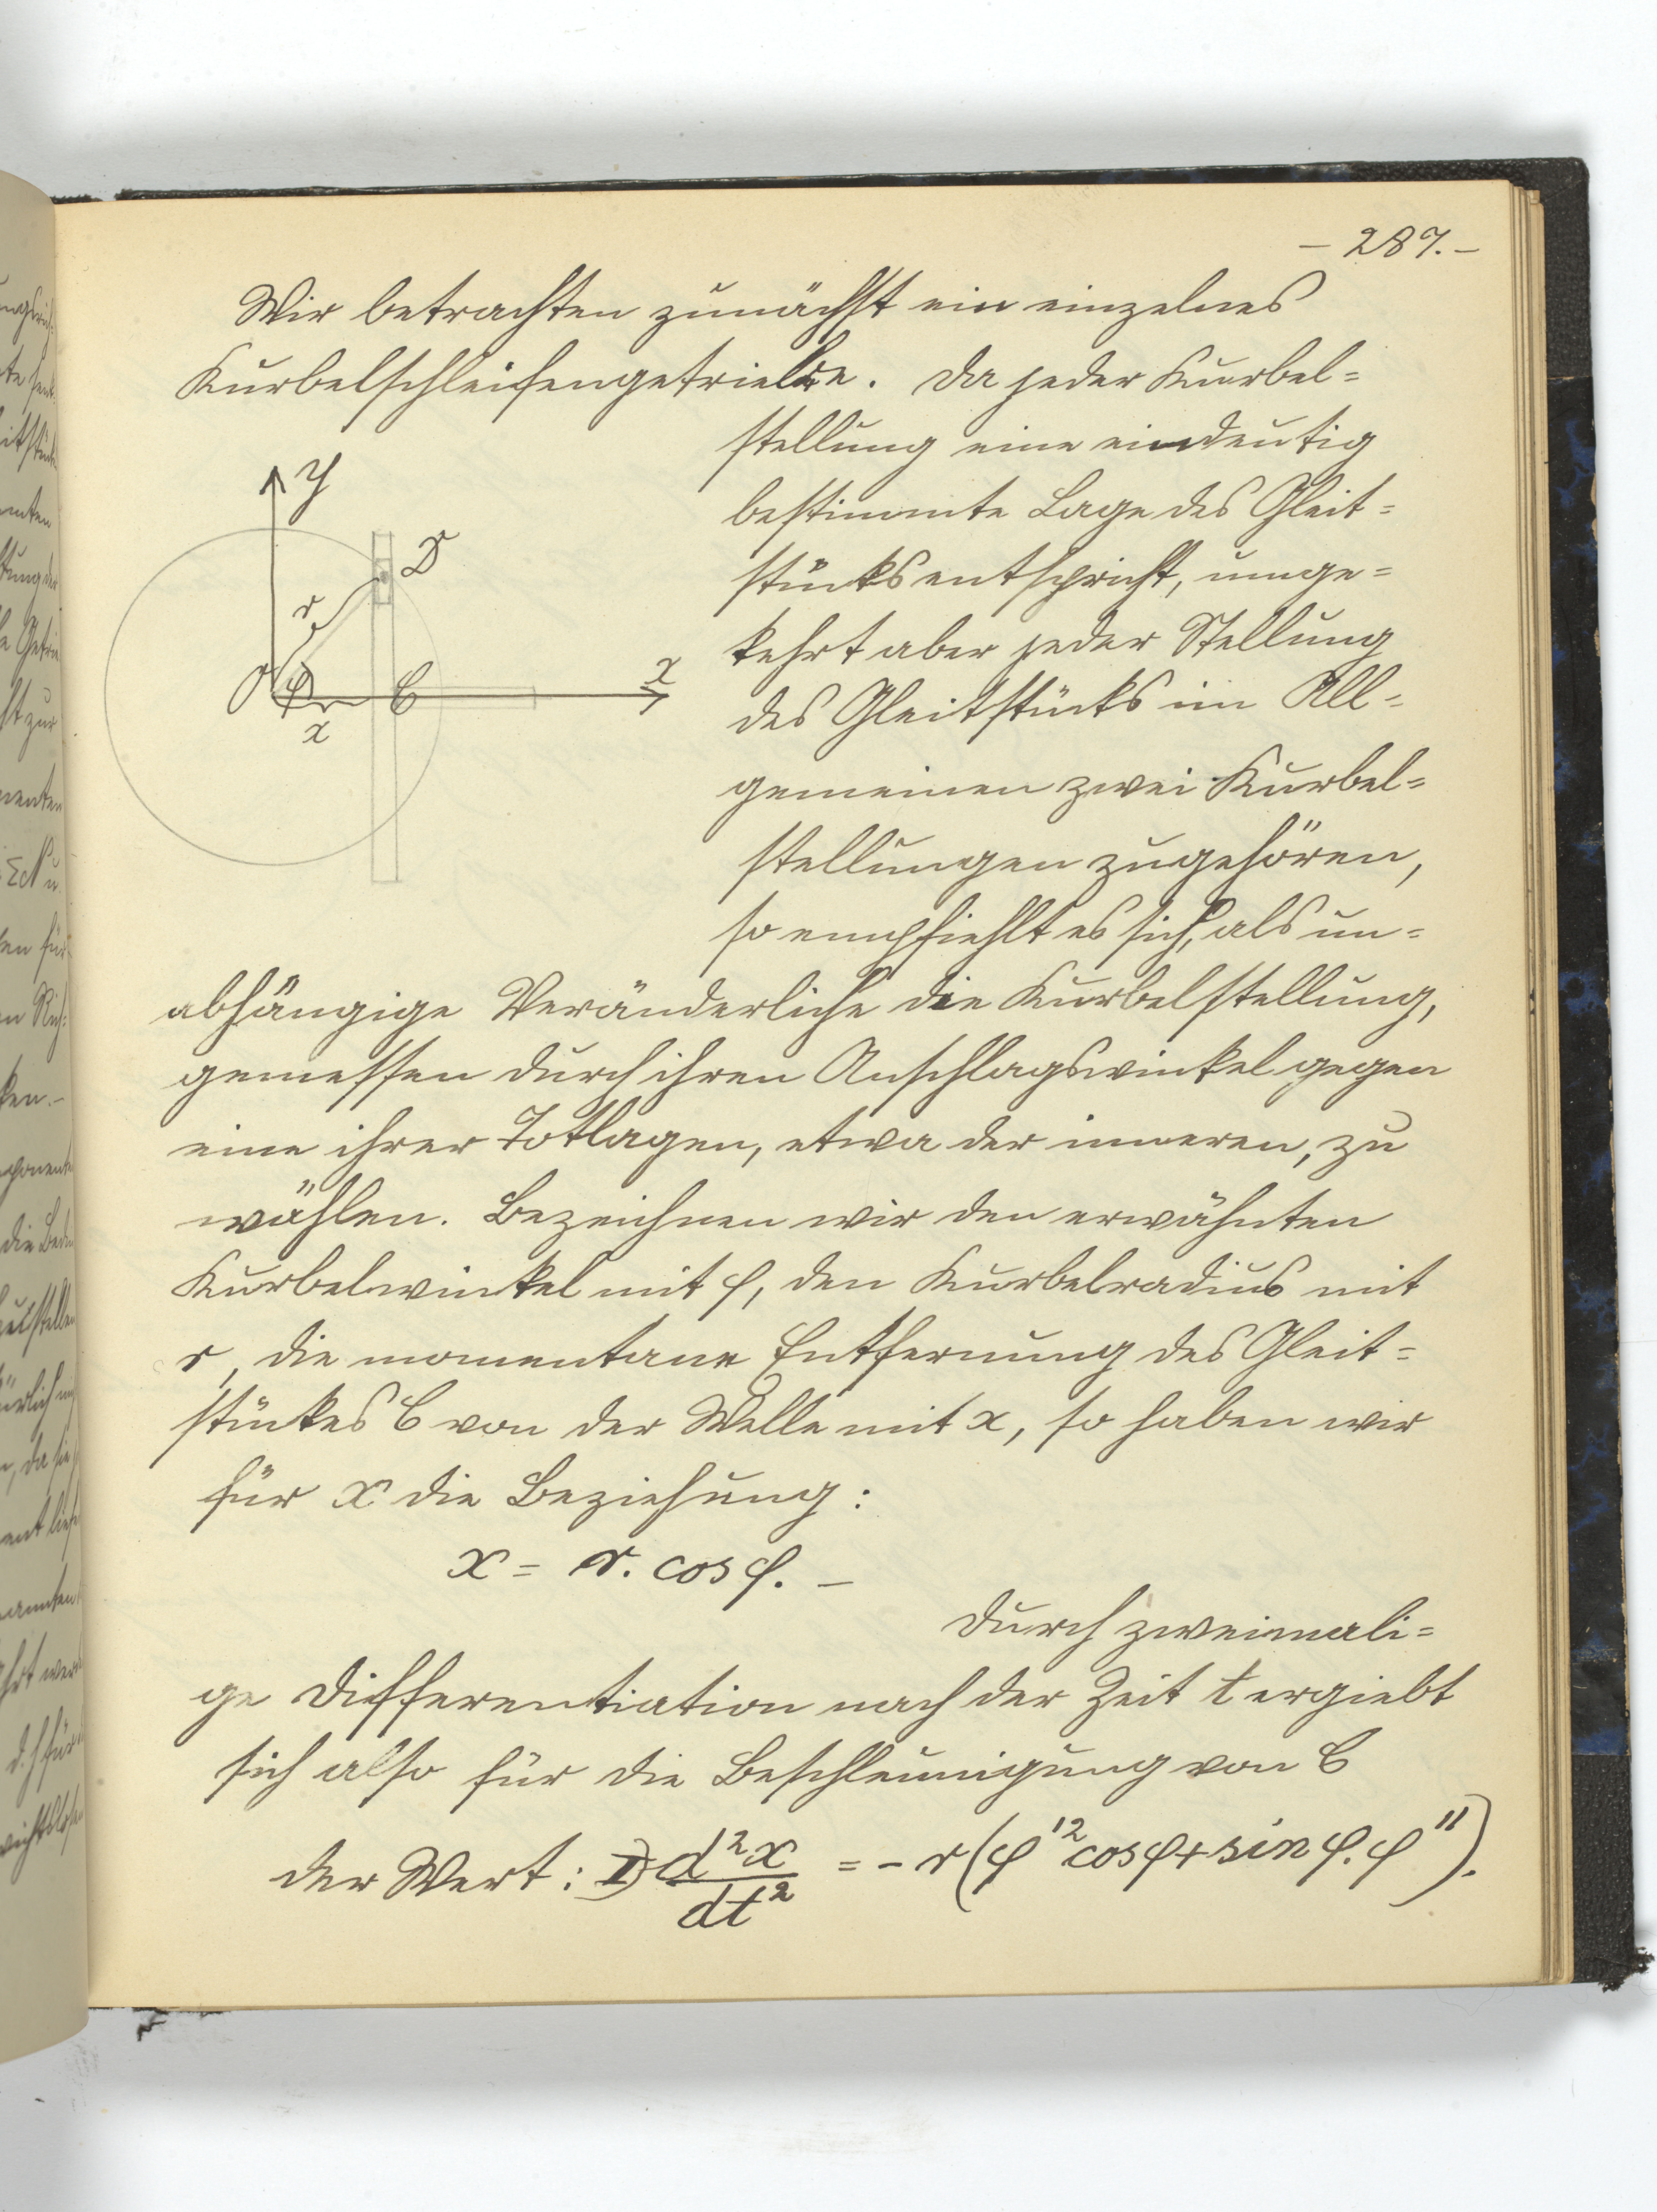 – 287. –
Wir betrachten zunächst ein einzelnes
Kurbelschleifengetriebe. Da jeder Kurbel=
stellung eine eindeutig
bestimmte Lage des Gleit=
stücks entspricht, umge=
kehrt aber jeder Stellung
des Gleitstücks im All=
gemeinen zwei Kurbel=
stellungen zugehören,
so empfiehlt es sich, als un=
abhängige Veränderliche die Kurbelstellung,
gemessen durch ihren Ausschlagswinkel gegen
eine ihrer Totlagen, etwa der inneren, zu
wählen. Bezeichnen wir den erwähnten
Kurbelwinkel mit φ, den Kurbelradius mit
r, die momentane Entfernung des Gleit=
stückes C von der Welle mit x, so haben wir
für x die Beziehung:
x = r. cos φ. –
Durch zweimali=
ge Differentiation nach der Zeit t ergiebt
sich also für die Beschleunigung von C
der Wert: I) d²x/dt² = – r(φ'² cos φ + sin φ. φ'').
y
D
r
O
φ
C
x
x